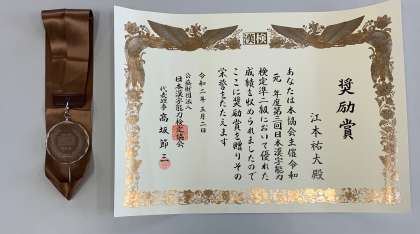 漢検
奨励賞
江本祐大殿
あなたは本協会主催令和
元年度第三回日本漢字能力
検定準二級において優れた
成績を収められましたので
ここに奨励賞を贈りその
栄誉をたたえます
令和二年三月二日
公益財団法人
日本漢字能力検定協会
代表理事 高坂節三